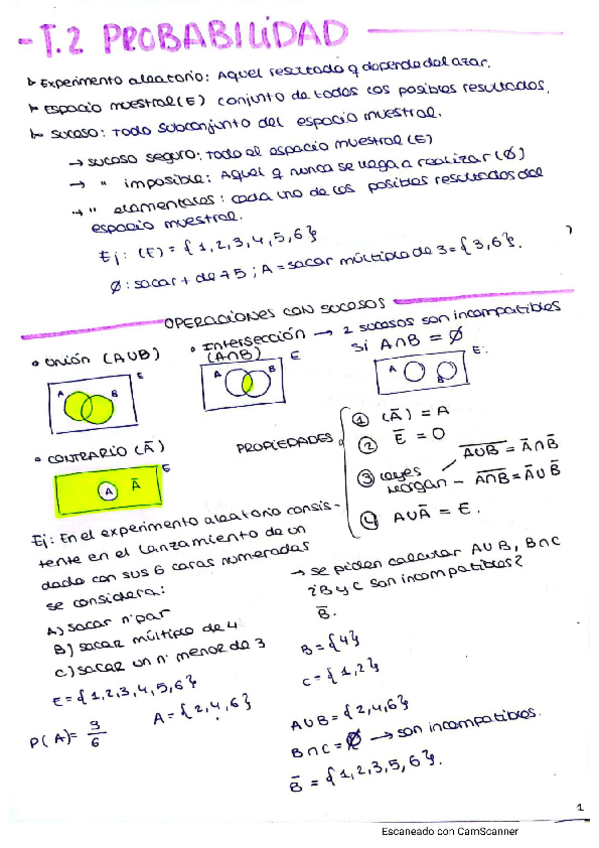 - T.2 PROBABILIDAD
Experimento aleatorio: Aquel resultado q depende del azar.
Espacio muestral (E) conjunto de todos los posibles resultados.
Suceso: Todo subconjunto del espacio muestral.
→ suceso seguro: todo el espacio muestral (E)
→ " imposible: Aquel q nunca se llega a realizar (∅)
→ " elementales: cada uno de los posibles resultados del
espacio muestral.
Ej: (E) = {1,2,3,4,5,6}
∅: sacar + de 75; A = sacar múltiplo de 3 = {3,6}.
OPERACIONES CON SUCESOS
• Unión (A∪B)
E
A B
• Intersección
(A∩B)
E
A B
→ 2 sucesos son incompatibles
si A∩B = ∅
E:
A B
• CONTRARIO (Ā)
E
A Ā
PROPIEDADES
① (Ā) = A
② Ē = O
③ Leyes
Morgan
A̅∪̅B̅ = Ā∩B̄
- A̅∩̅B̅ = Ā∪B̄
④ A∪Ā = E.
Ej: En el experimento aleatorio consis-
tente en el lanzamiento de un
dado con sus 6 caras numeradas
se considera:
A) sacar nº par
B) sacar múltiplo de 4
C) sacar un nº menor de 3
E = {1,2,3,4,5,6}
A = {2,4,6}
P(A) = 3/6
→ se piden calcular A∪B, B∩C
¿B y C son incompatibles?
B̄.
B = {4}
C = {1,2}
A∪B = {2,4,6}
B∩C = ∅ → son incompatibles.
B̄ = {1,2,3,5,6}.
1
Escaneado con CamScanner